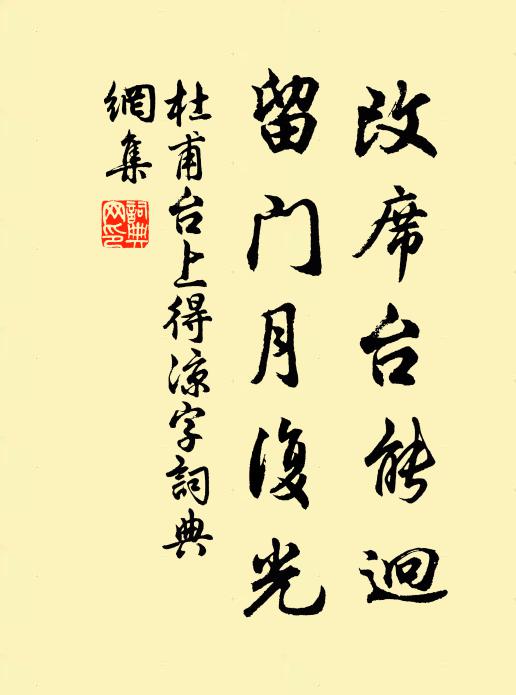 改席台能迥
留門月復光
杜甫台上得凉字詞典
網集
詞典
网印